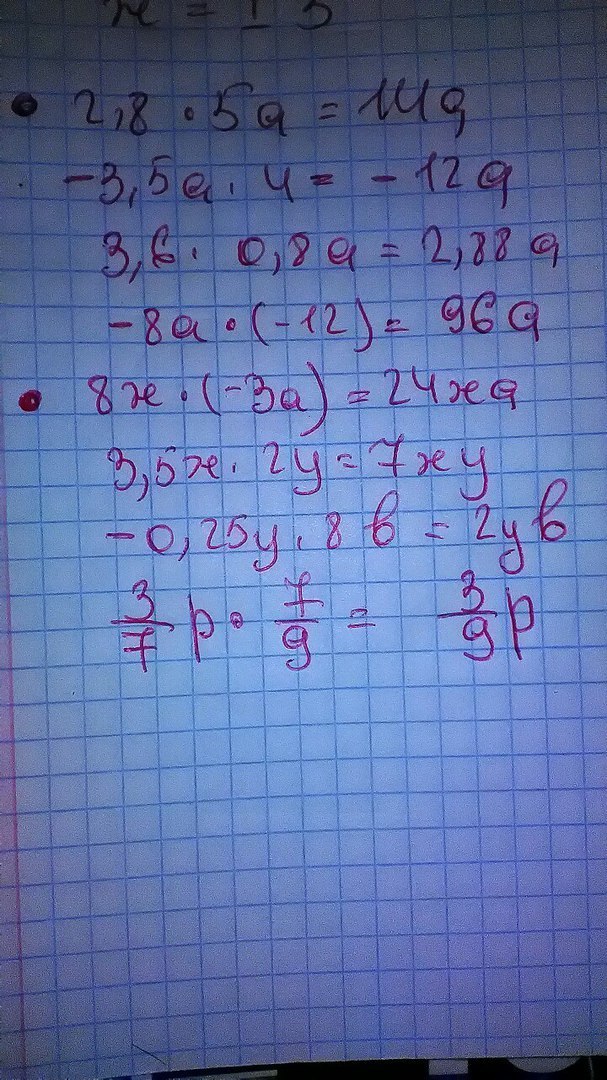 x = ± 3
2,8 · 5a = 14a
-3,5a · 4 = -12a
3,6 · 0,8a = 2,88a
-8a · (-12) = 96a
8x · (-3a) = 24xa
3,5x · 2y = 7xy
-0,25y · 8b = 2yb
3/7 p · 7/9 = 3/9 p